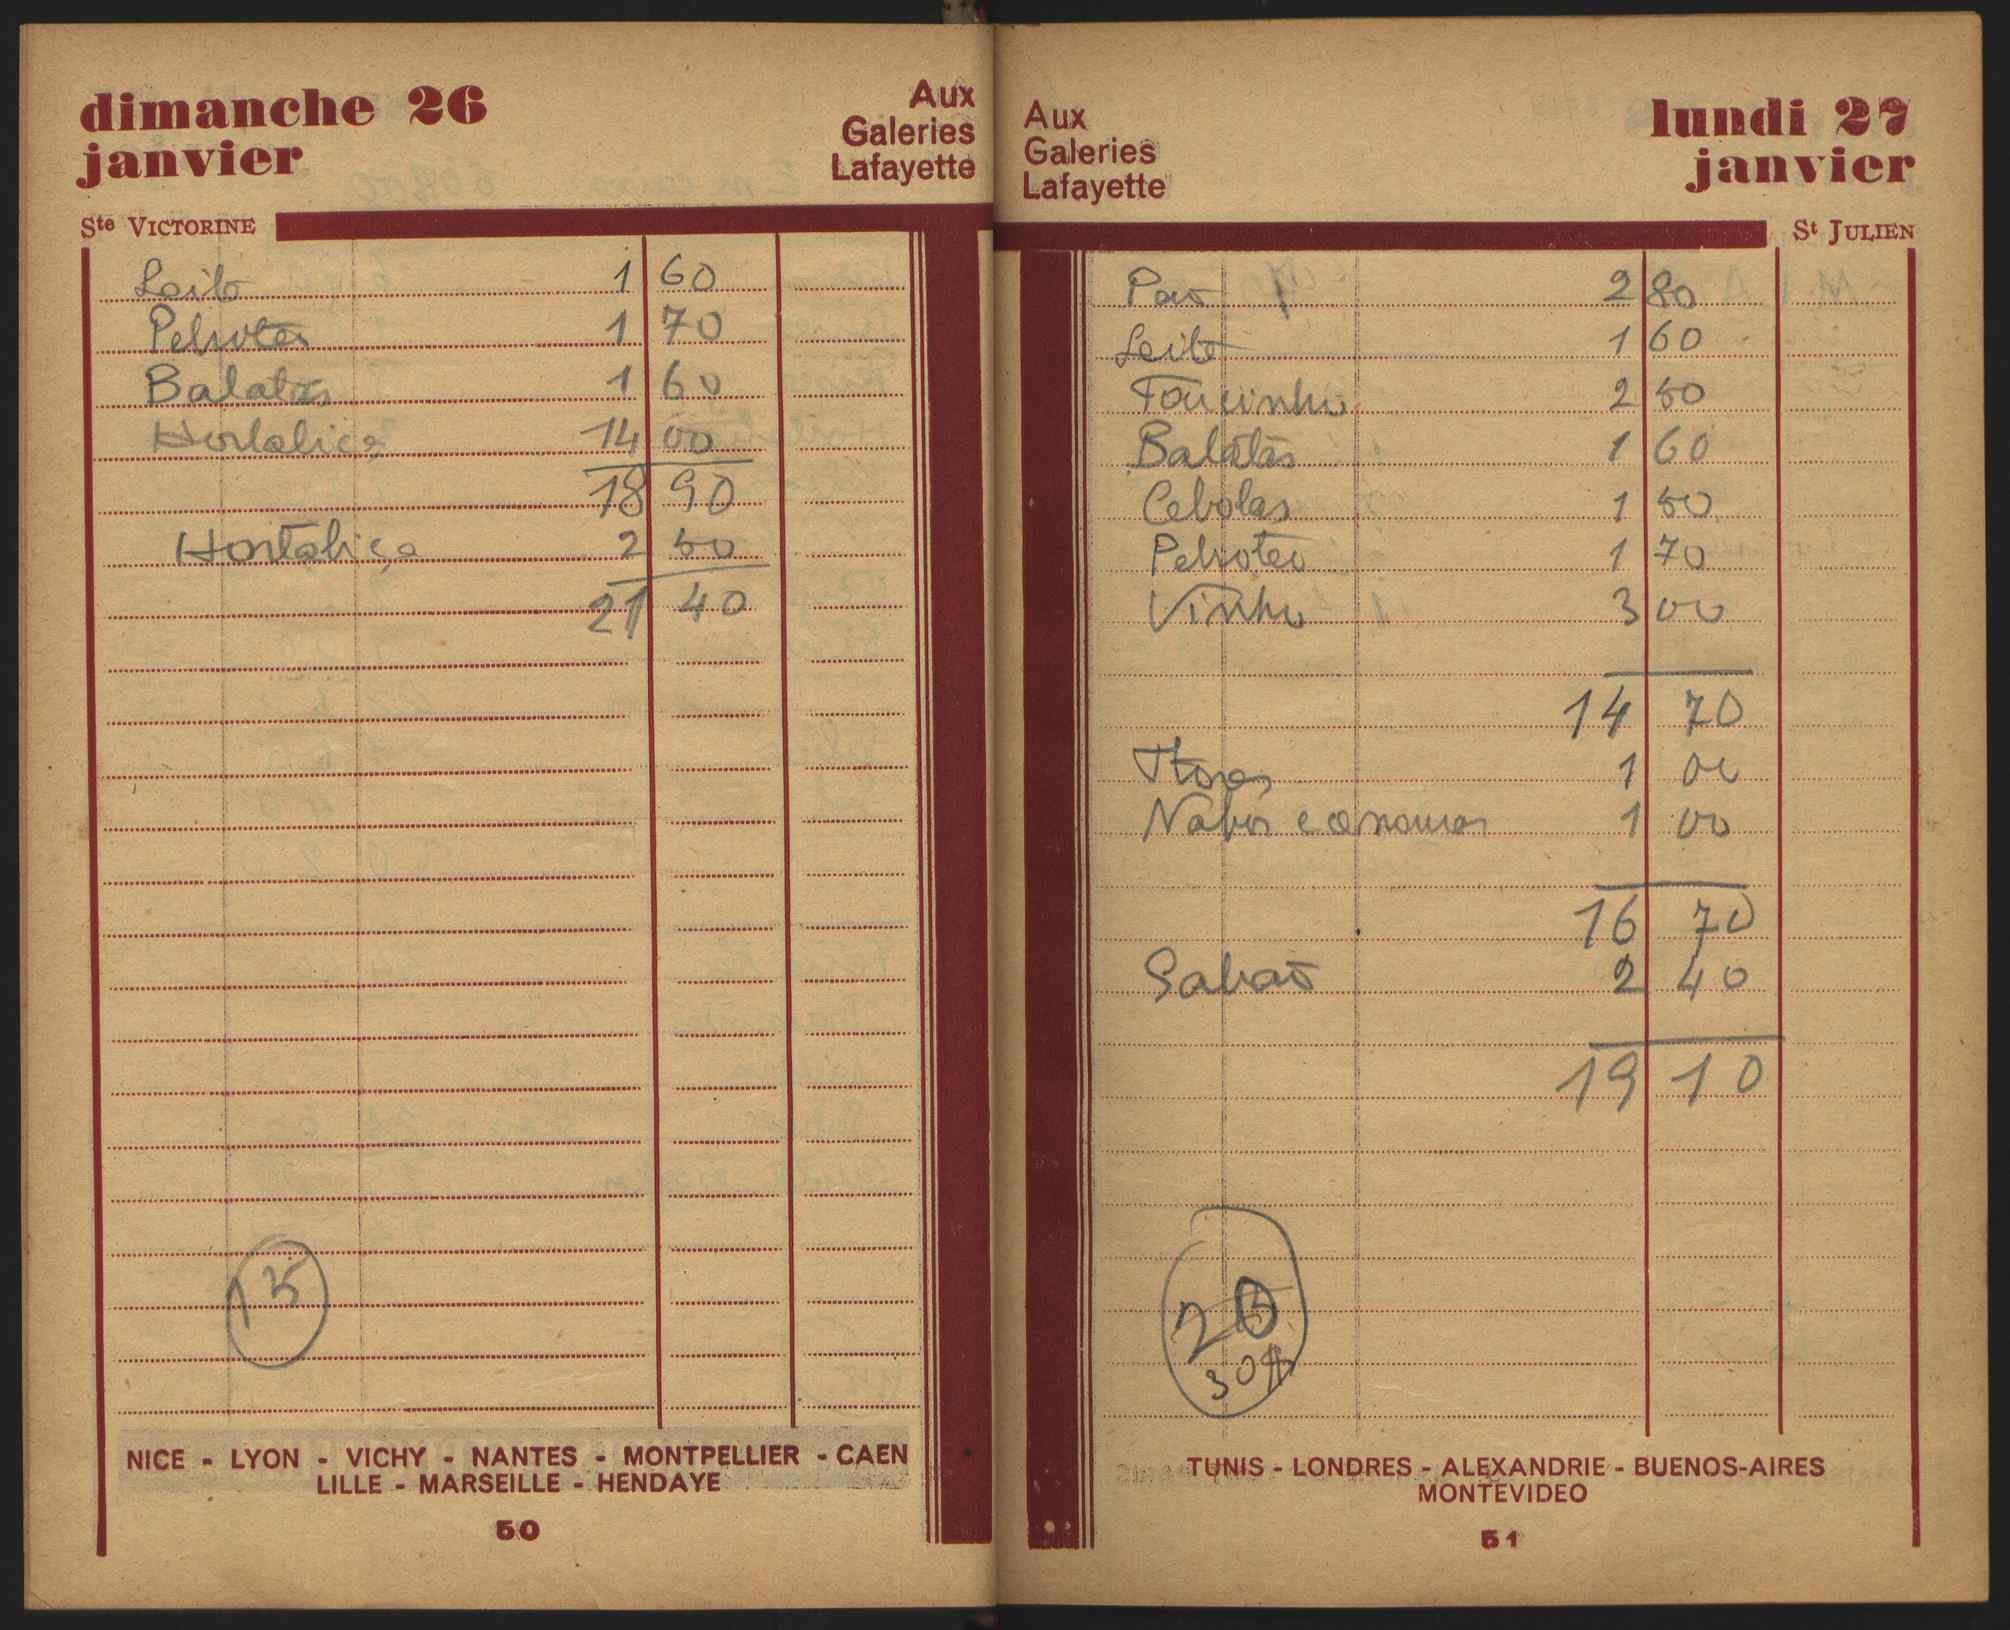 dimanche 26
janvier
Aux
Galeries
Lafayette
Ste VICTORINE
Leite 1 60
Petroleo 1 70
Batatas 1 60
Hortaliça 14 00
18 90
Hortaliça 2 50
21 40
15
NICE - LYON - VICHY - NANTES - MONTPELLIER - CAEN
LILLE - MARSEILLE - HENDAYE
50
Aux
Galeries
Lafayette
lundi 27
janvier
St JULIEN
Pão 2 80
Leite 1 60
Toucinho 2 50
Batatas 1 60
Cebolas 1 50
Petroleo 1 70
Vinho 3 00
14 70
1 00
Nabos e cenouras 1 00
16 70
Sabão 2 40
19 10
20
30$
TUNIS - LONDRES - ALEXANDRIE - BUENOS-AIRES
MONTEVIDEO
51